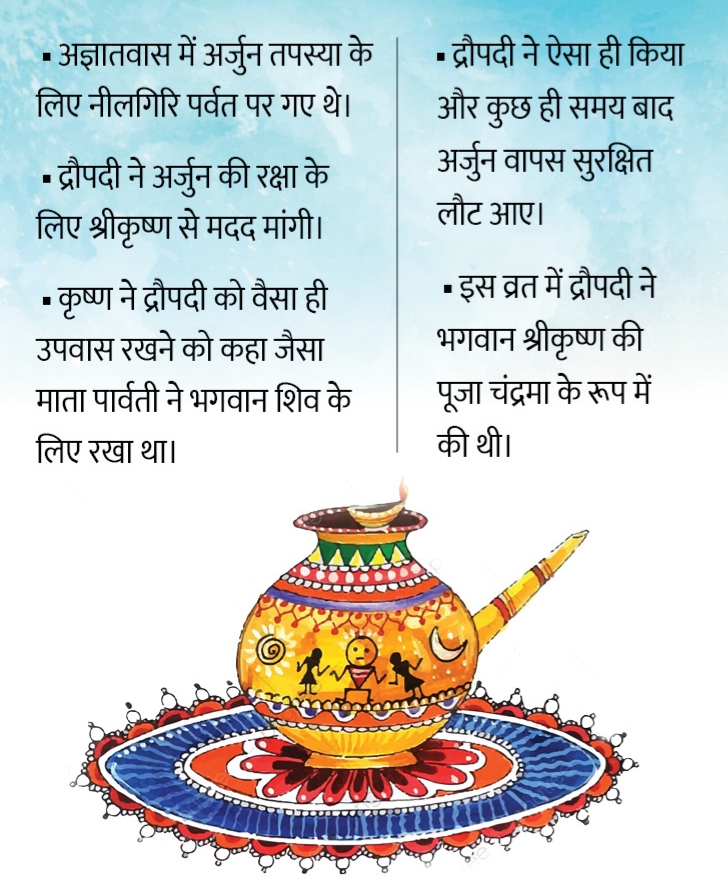 ▪ अज्ञातवास में अर्जुन तपस्या के
लिए नीलगिरि पर्वत पर गए थे।
▪ द्रौपदी ने अर्जुन की रक्षा के
लिए श्रीकृष्ण से मदद मांगी।
▪ कृष्ण ने द्रौपदी को वैसा ही
उपवास रखने को कहा जैसा
माता पार्वती ने भगवान शिव के
लिए रखा था।
▪ द्रौपदी ने ऐसा ही किया
और कुछ ही समय बाद
अर्जुन वापस सुरक्षित
लौट आए।
▪ इस व्रत में द्रौपदी ने
भगवान श्रीकृष्ण की
पूजा चंद्रमा के रूप में
की थी।